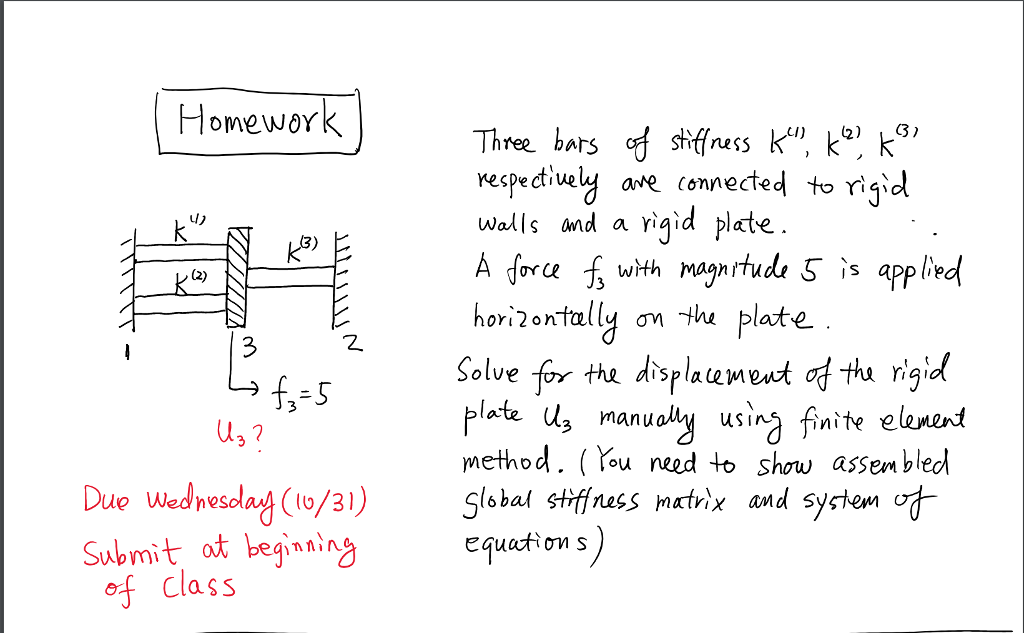 Homework
Three bars of stiffness K⁽¹⁾, K⁽²⁾, K⁽³⁾
respectively are connected to rigid
walls and a rigid plate.
A force f₃ with magnitude 5 is applied
horizontally on the plate.
Solve for the displacement of the rigid
plate U₃ manually using finite element
method. (You need to show assembled
global stiffness matrix and system of
equations)
K⁽¹⁾
K⁽²⁾
K⁽³⁾
1
3
2
f₃=5
U₃?
Due Wednesday (10/31)
Submit at beginning
of Class